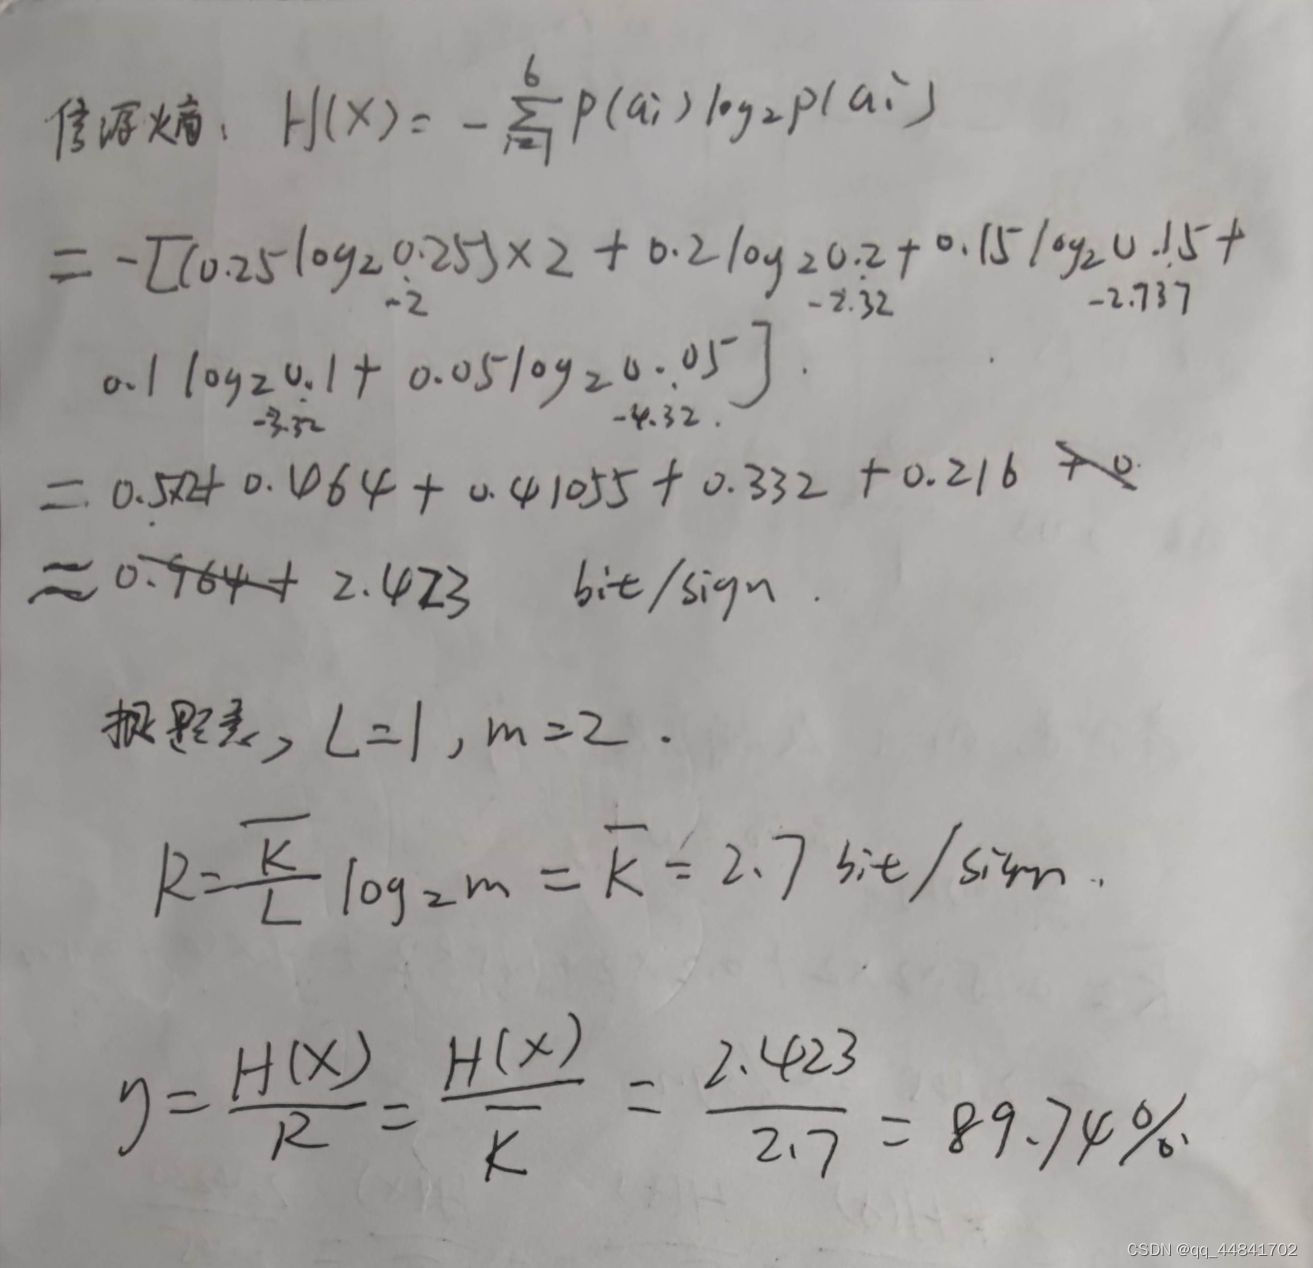 信源熵: H(X) = - 6∑i=1 p(ai) log₂p(ai)
= -[(0.25log₂0.25)×2 + 0.2log₂0.2 + 0.15log₂0.15 +
-2 -2.32 -2.737
0.1 log₂0.1 + 0.05log₂0.05].
-3.32 -4.32.
= 0.5×2 + 0.464 + 0.41055 + 0.332 + 0.216
≈ 2.423 bit/sign.
根据题意, L=1, m=2.
R = K̅/L log₂m = K̅ = 2.7 bit/sign.
η = H(X)/R = H(X)/K̅ = 2.423/2.7 = 89.74%.
CSDN @qq_44841702